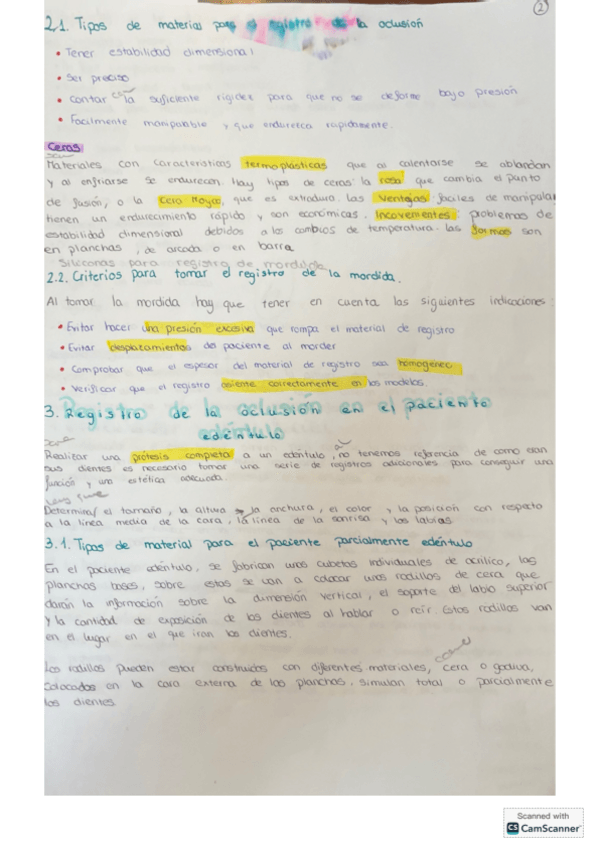 2
2.1. Tipos de materias para el registro de la oclusión
• Tener estabilidad dimensional
• Ser preciso
• Contar con la suficiente rigidez para que no se deforme bajo presión
• Facilmente manipulable y que endurezca rapidamente.
Ceras
Materiales con características termoplásticas que al calentarse se ablandan
y al enfriarse se endurecen. Hay tipos de ceras: la rosa que cambia el punto
de fusión, o la Cera Moyco, que es extradura. Las ventajas: faciles de manipular
tienen un endurecimiento rápido y son económicas. Incovenientes: problemas de
estabilidad dimensional debidos a los cambios de temperatura. Las formas son
en planchas, de arcada o en barra.
Siliconas para registro de mordida
2.2. Criterios para tomar el registro de la mordida.
Al tomar la mordida hay que tener en cuenta las siguientes indicaciones:
• Evitar hacer una presión excesiva que rompa el material de registro
• Evitar desplazamientos del paciente al morder
• Comprobar que el espesor del material de registro sea homogéneo
• Verificar que el registro asiente correctamente en los modelos.
3. Registro de la oclusión en el paciento
edéntulo
Realizar una prótesis completa a un edéntulo, no tenemos referencia de como eran
sus dientes es necesario tomar una serie de registros adicionales para conseguir una
función y una estética adecuada.
Determinar el tamaño, la altura, la anchura, el color y la posición con respecto
a la línea media de la cara, la línea de la sonrisa y los labios
3.1. Tipos de material para el paciente parcialmente edéntulo
En el paciente edéntulo, se fabrican unas cubetas individuales de acrílico, las
planchas bases, sobre estas se van a colocar unos rodillos de cera que
darán la información sobre la dimensión vertical, el soporte del labio superior
y la cantidad de exposición de los dientes al hablar o reír. Estos rodillos van
en el lugar en el que irían los dientes.
Los rodillos pueden estar construidos con diferentes materiales, cera o godiva,
colocados en la cara externa de las planchas. Simulan total o parcialmente
los dientes
Scanned with
CS CamScanner